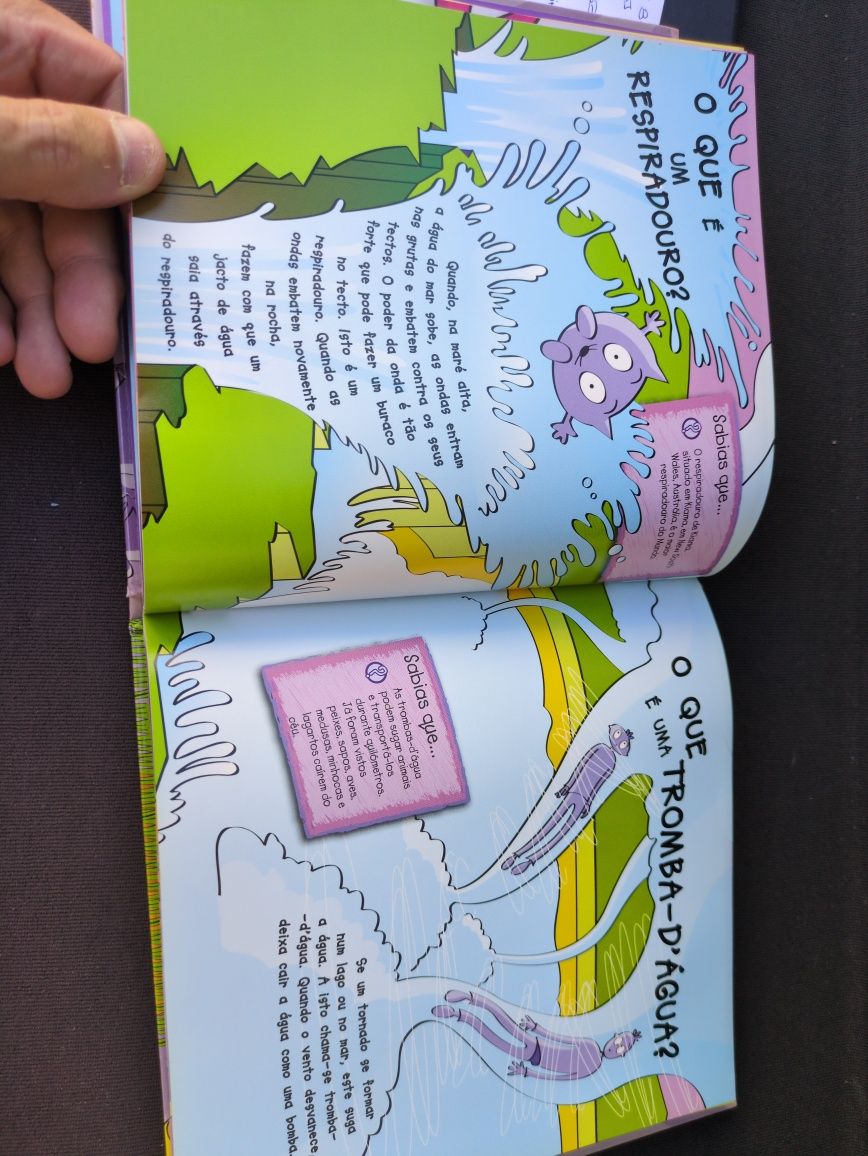 O QUE É
UM
RESPIRADOURO?
Quando, na maré alta,
a água do mar sobe, as ondas entram
nas grutas e embatem contra os seus
tectos. O poder da onda é tão
forte que pode fazer um buraco
no tecto. Isto é um
respiradouro. Quando as
ondas embatem novamente
na rocha,
fazem com que um
jacto de água
saia através
do respiradouro.
Sabias que...
O respiradouro de Kiama,
situado em Kiama, em New South
Wales, Austrália, é o maior
respiradouro do Mundo.
O QUE
É UMA TROMBA-D'ÁGUA?
Sabias que...
As trombas-d'água
podem sugar animais
e transportá-los
durante quilómetros.
Já foram vistos
peixes, sapos, aves,
medusas, minhocas e
lagartos caírem do
céu.
Se um tornado se formar
num lago ou no mar, este suga
a água. A isto chama-se tromba-
-d'água. Quando o vento desvanece,
deixa cair a água como uma bomba.